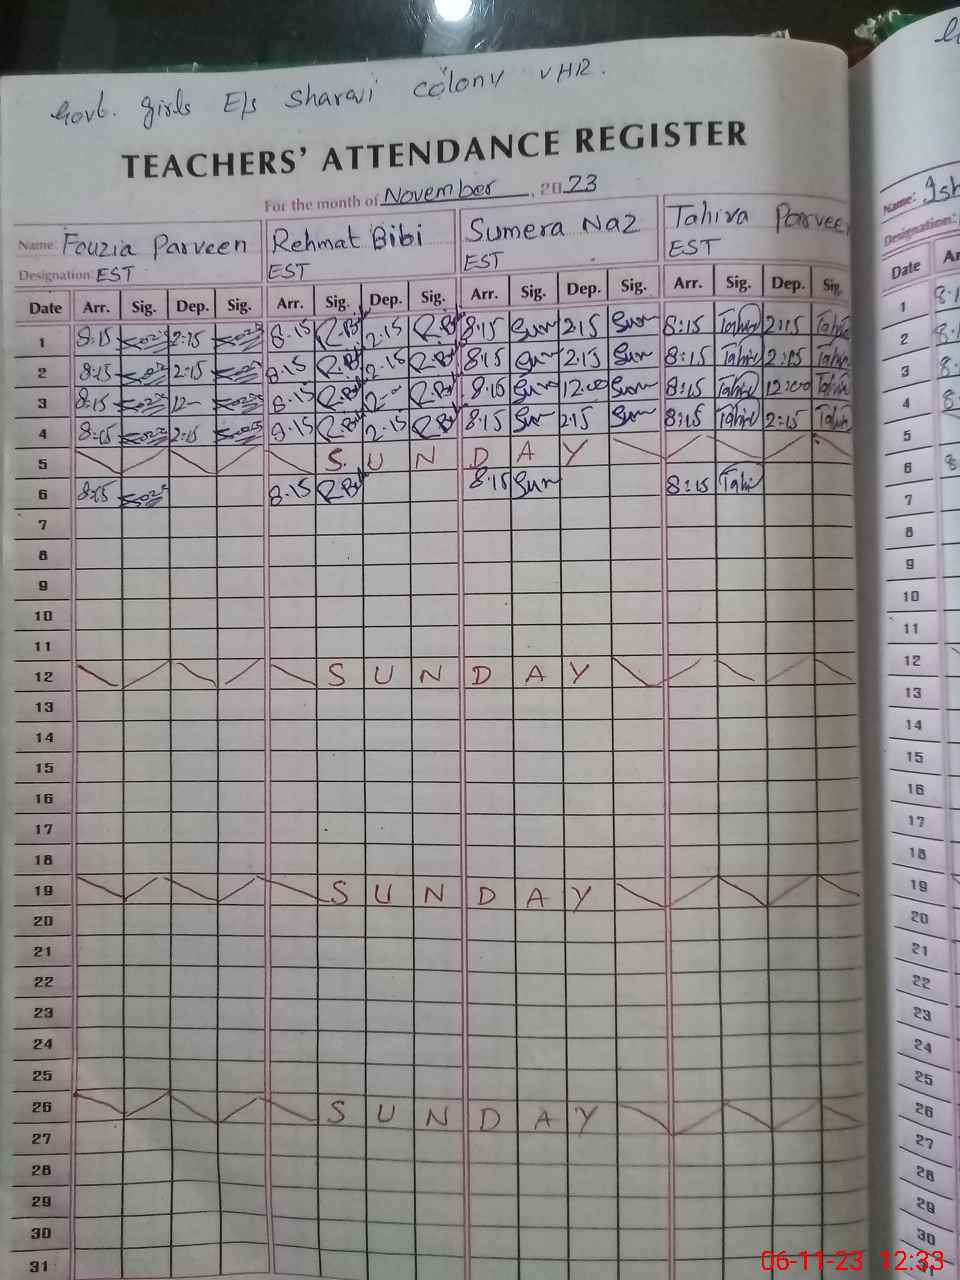 Govt. girls E/s Sharqi colony VHR.
TEACHERS' ATTENDANCE REGISTER
For the month of November 2023
Name: Fouzia Parveen Rehmat Bibi Sumera Naz Tahira Parveen Name:
Designation: EST EST EST EST Designation:
Date Arr. Sig. Dep. Sig. Arr. Sig. Dep. Sig. Arr. Sig. Dep. Sig. Arr. Sig. Dep. Sig. Date
1 8:15 2:15 8.15 R.Bibi 2.15 R.Bibi 8:15 Sum 2:15 Sum 8:15 Tahira 2:15 Tahira 1
2 8:15 2:15 8.15 R.Bibi 2.15 R.Bibi 8:15 Sum 2:15 Sum 8:15 Tahira 2:15 Tahira 2
3 8:15 12- 8.15 R.Bibi R.Bibi 8:15 Sum 12:00 Sum 8:15 Tahira 12:00 Tahira 3
4 8:15 2:15 8.15 R.Bibi 2.15 R.Bibi 8:15 Sum 2:15 Sum 8:15 Tahira 2:15 Tahira 4
5 S U N D A Y 5
6 8:15 8.15 R.Bibi 8:15 Sum 8:15 Tahira 6
7 7
8 8
9 9
10 10
11 11
12 S U N D A Y 12
13 13
14 14
15 15
16 16
17 17
18 18
19 S U N D A Y 19
20 20
21 21
22 22
23 23
24 24
25 25
26 S U N D A Y 26
27 27
28 28
29 29
30 30
31 31
06-11-23 12:33